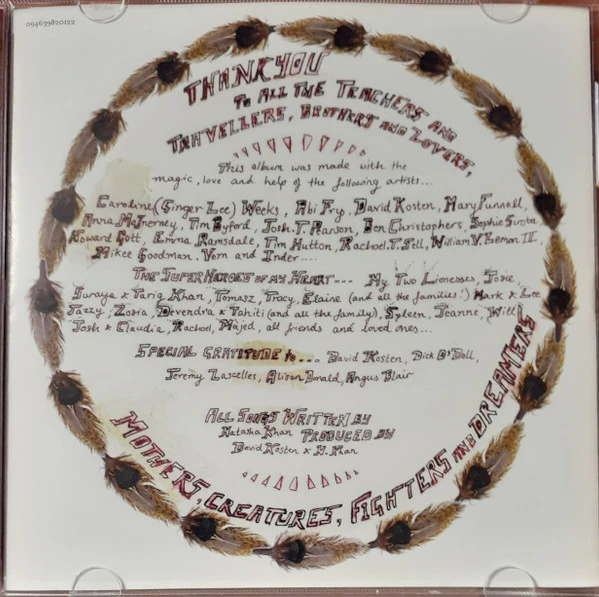 094639820122
THANKYOU
TO ALL THE TEACHERS AND
TRAVELLERS, BROTHERS AND LOVERS,
This album was made with the
magic, love and help of the following artists...
Caroline (Ginger Lee) Weeks, Abi Fry, David Kosten, Mary Funnell,
Anna McInerney, Tim Byford, Josh. T. Pearson, Ben Christophers, Sophie Sirota
Howard Gott, Emma Ramsdale, Tim Hutton, Rachael. T. Sell, William V. Lemon II,
Mikee Goodman. Vorn and Inder....
THE SUPER HEROES OF MY HEART... My Two Lionesses, Josie,
Suraya + Tariq Khan, Tomasz, Tracy, Elaine (and all the families!) Mark + Lee
Jazzy, Zosia, Devendra + Tahiti (and all the family), Syleen, Jeanne, Will
Josh + Claudia, Rachael, Majed, all friends and loved ones...
SPECIAL GRATITUDE to... David Kosten, Dick O'Dell,
Jeremy Lascelles, Alison Donald, Angus Blair
ALL SONGS WRITTEN BY
Natasha Khan PRODUCED BY
David Kosten + N. Khan
MOTHERS, CREATURES, FIGHTERS AND DREAMERS